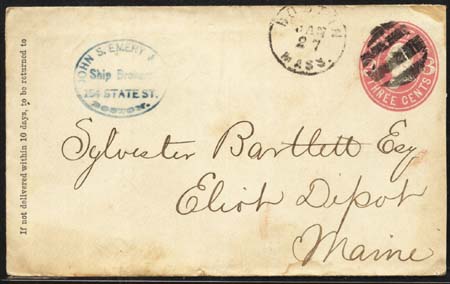 JOHN S. EMERY &
Ship Brokers
154 STATE ST.
BOSTON.
BOSTON
JAN
27
MASS.
THREE CENTS
If not delivered within 10 days, to be returned to
Sylvester Bartlett Esq
Eliot Depot
Maine